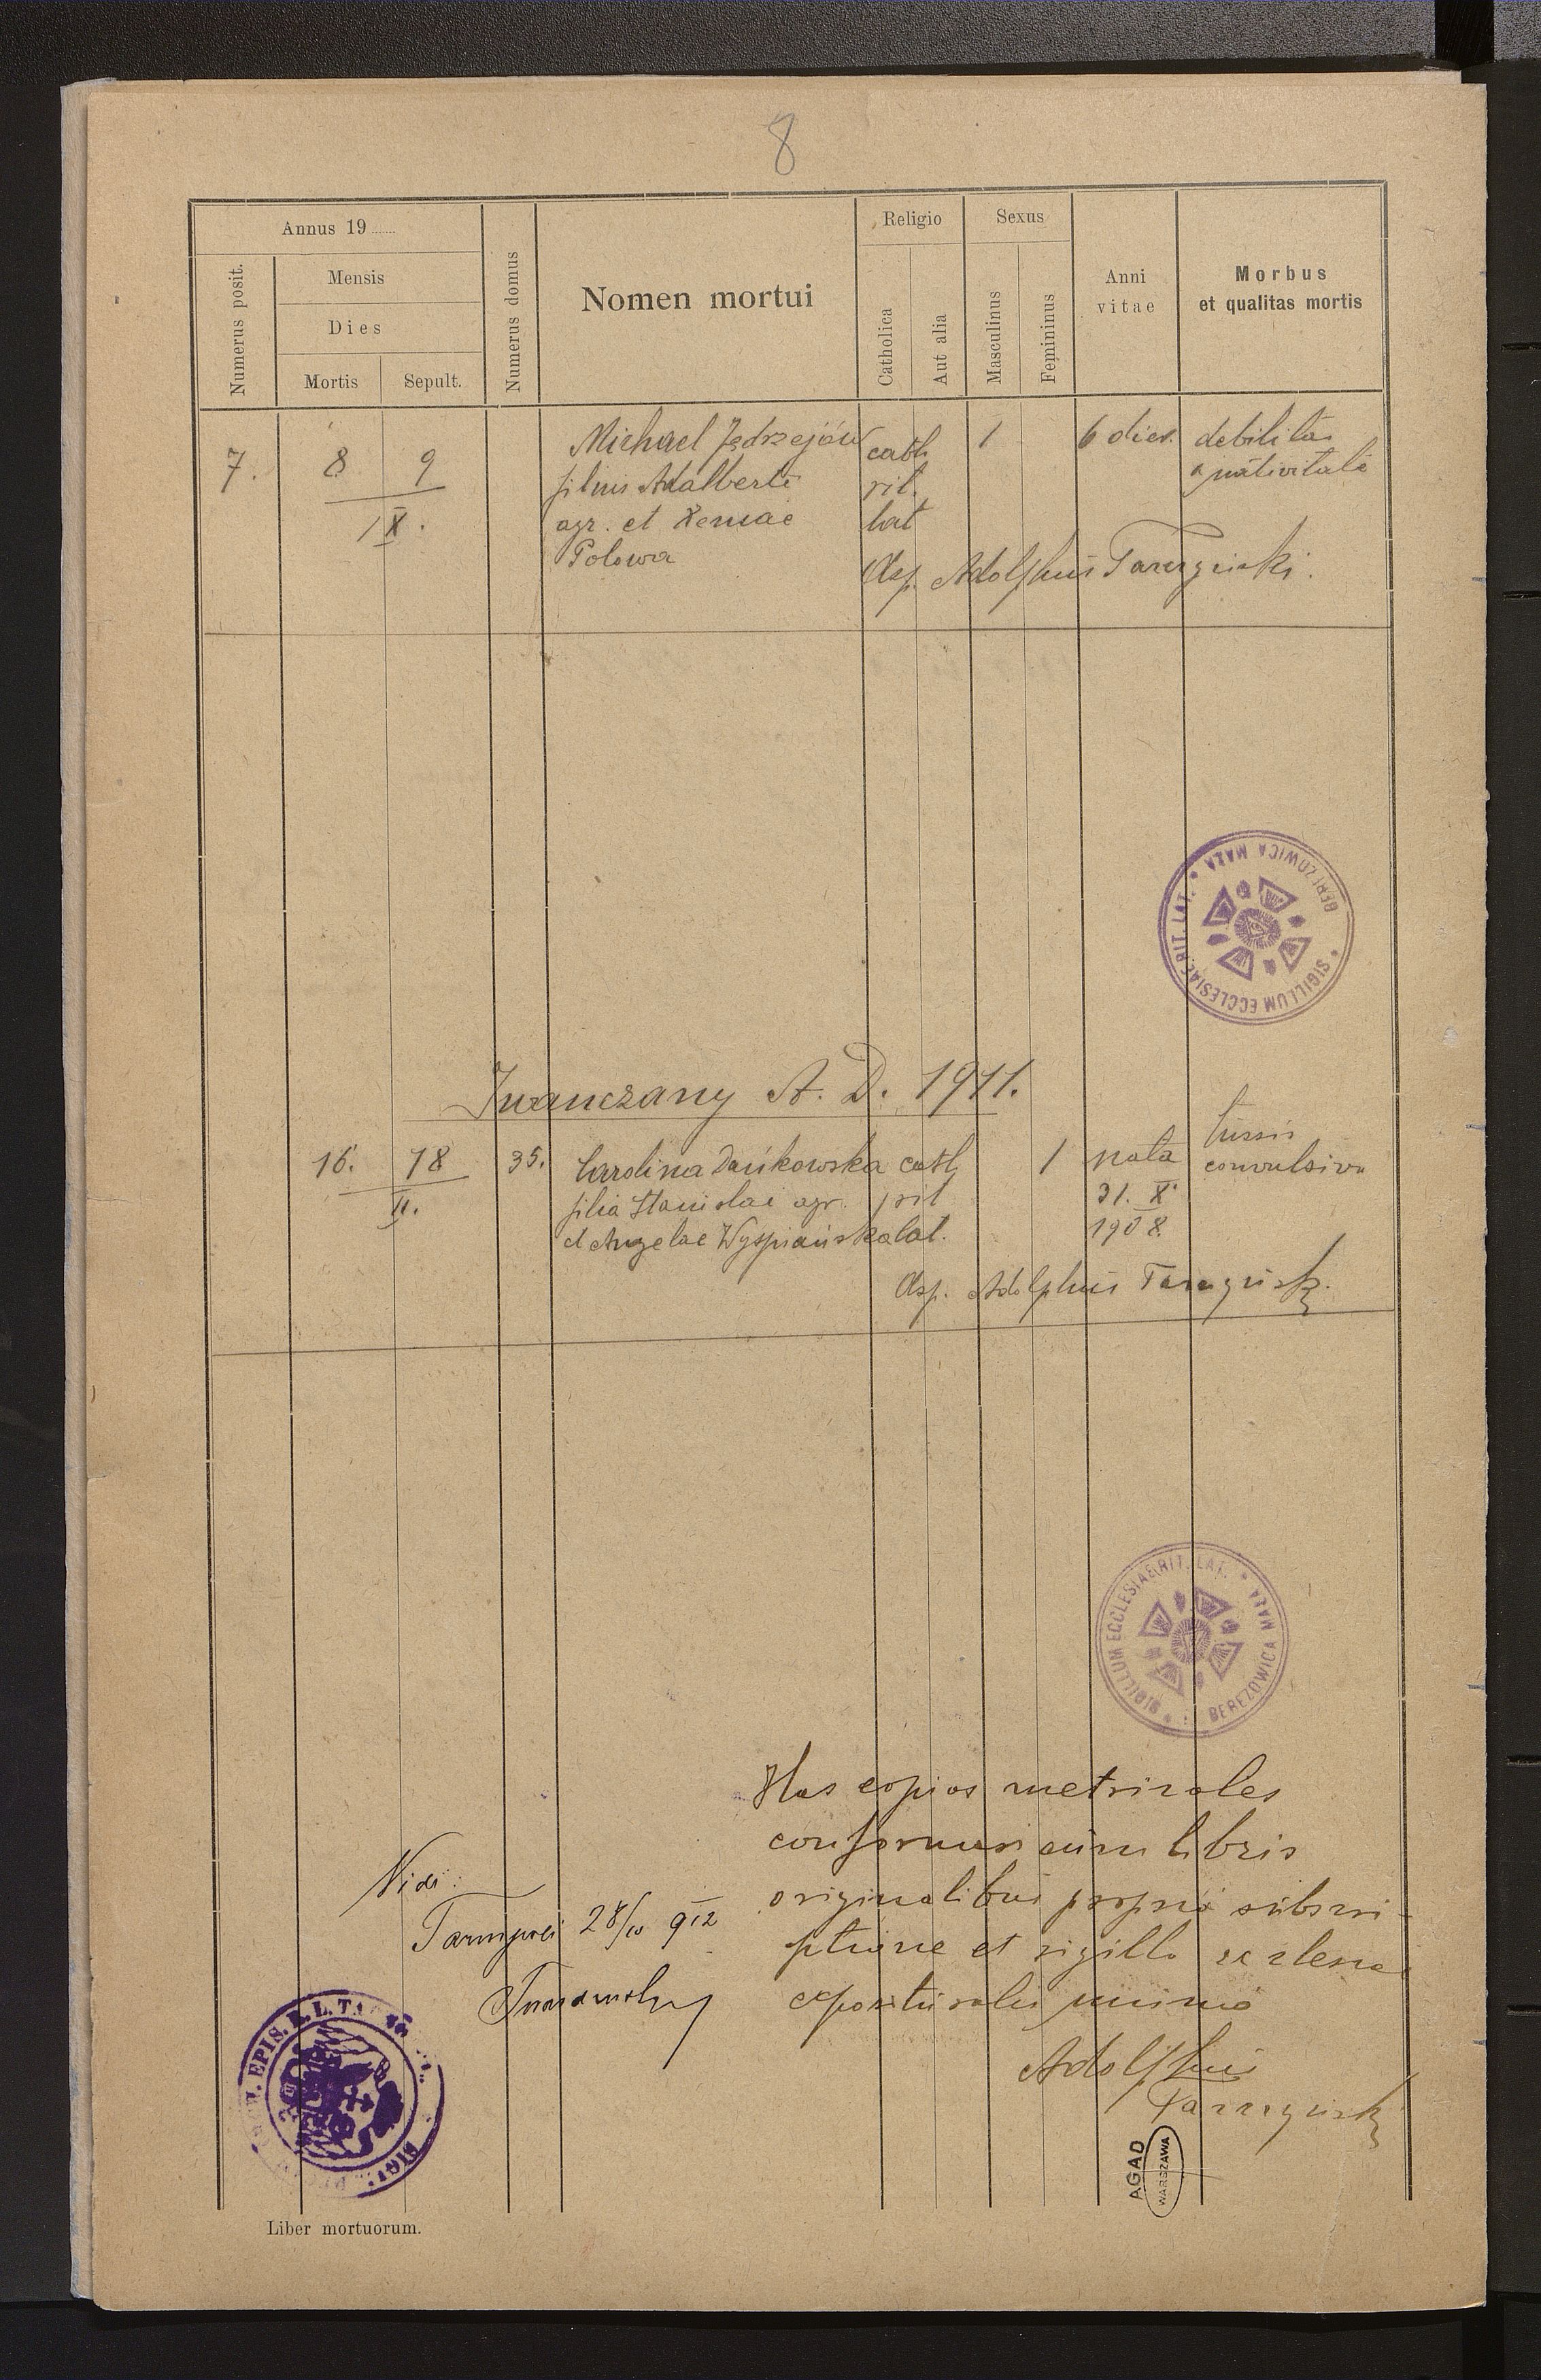 8
Annus 19......
Numerus posit.
Mensis
Dies
Mortis
Sepult.
Numerus domus
Nomen mortui
Religio
Catholica
Aut alia
Sexus
Masculinus
Femininus
Anni
vitae
Morbus
et qualitas mortis
7. 8 9 Michael Jędrzejów cath. 1 6 dier. debilitas
filius Adalberti rit. a nativitate
IX. agr. et Xeniae lat
Polowa
Exp. Adolphus
SIGILLUM ECCLESIAE RIT. LAT. * BEREZOWICA MAŁA *
Iwanczany A. D. 1911.
16. 18 35. Carolina Dańkowska cath 1 nata tussis convulsiva
II. filia Stanislai agr. rit 31. X
et Angelae Wyspiańska lat. 1908.
Exp. Adolphus
SIGILLUM ECCLESIAE RIT. LAT. * BEREZOWICA MAŁA *
Has copias metricales
conformes cum libris
originalibus propria subscri-
ptione et sigillo ecclesiae
exposituralis munio
Adolphus
Vidi:
28/IV 912
EPIS. R. L.
AGAD
WARSZAWA
Liber mortuorum.